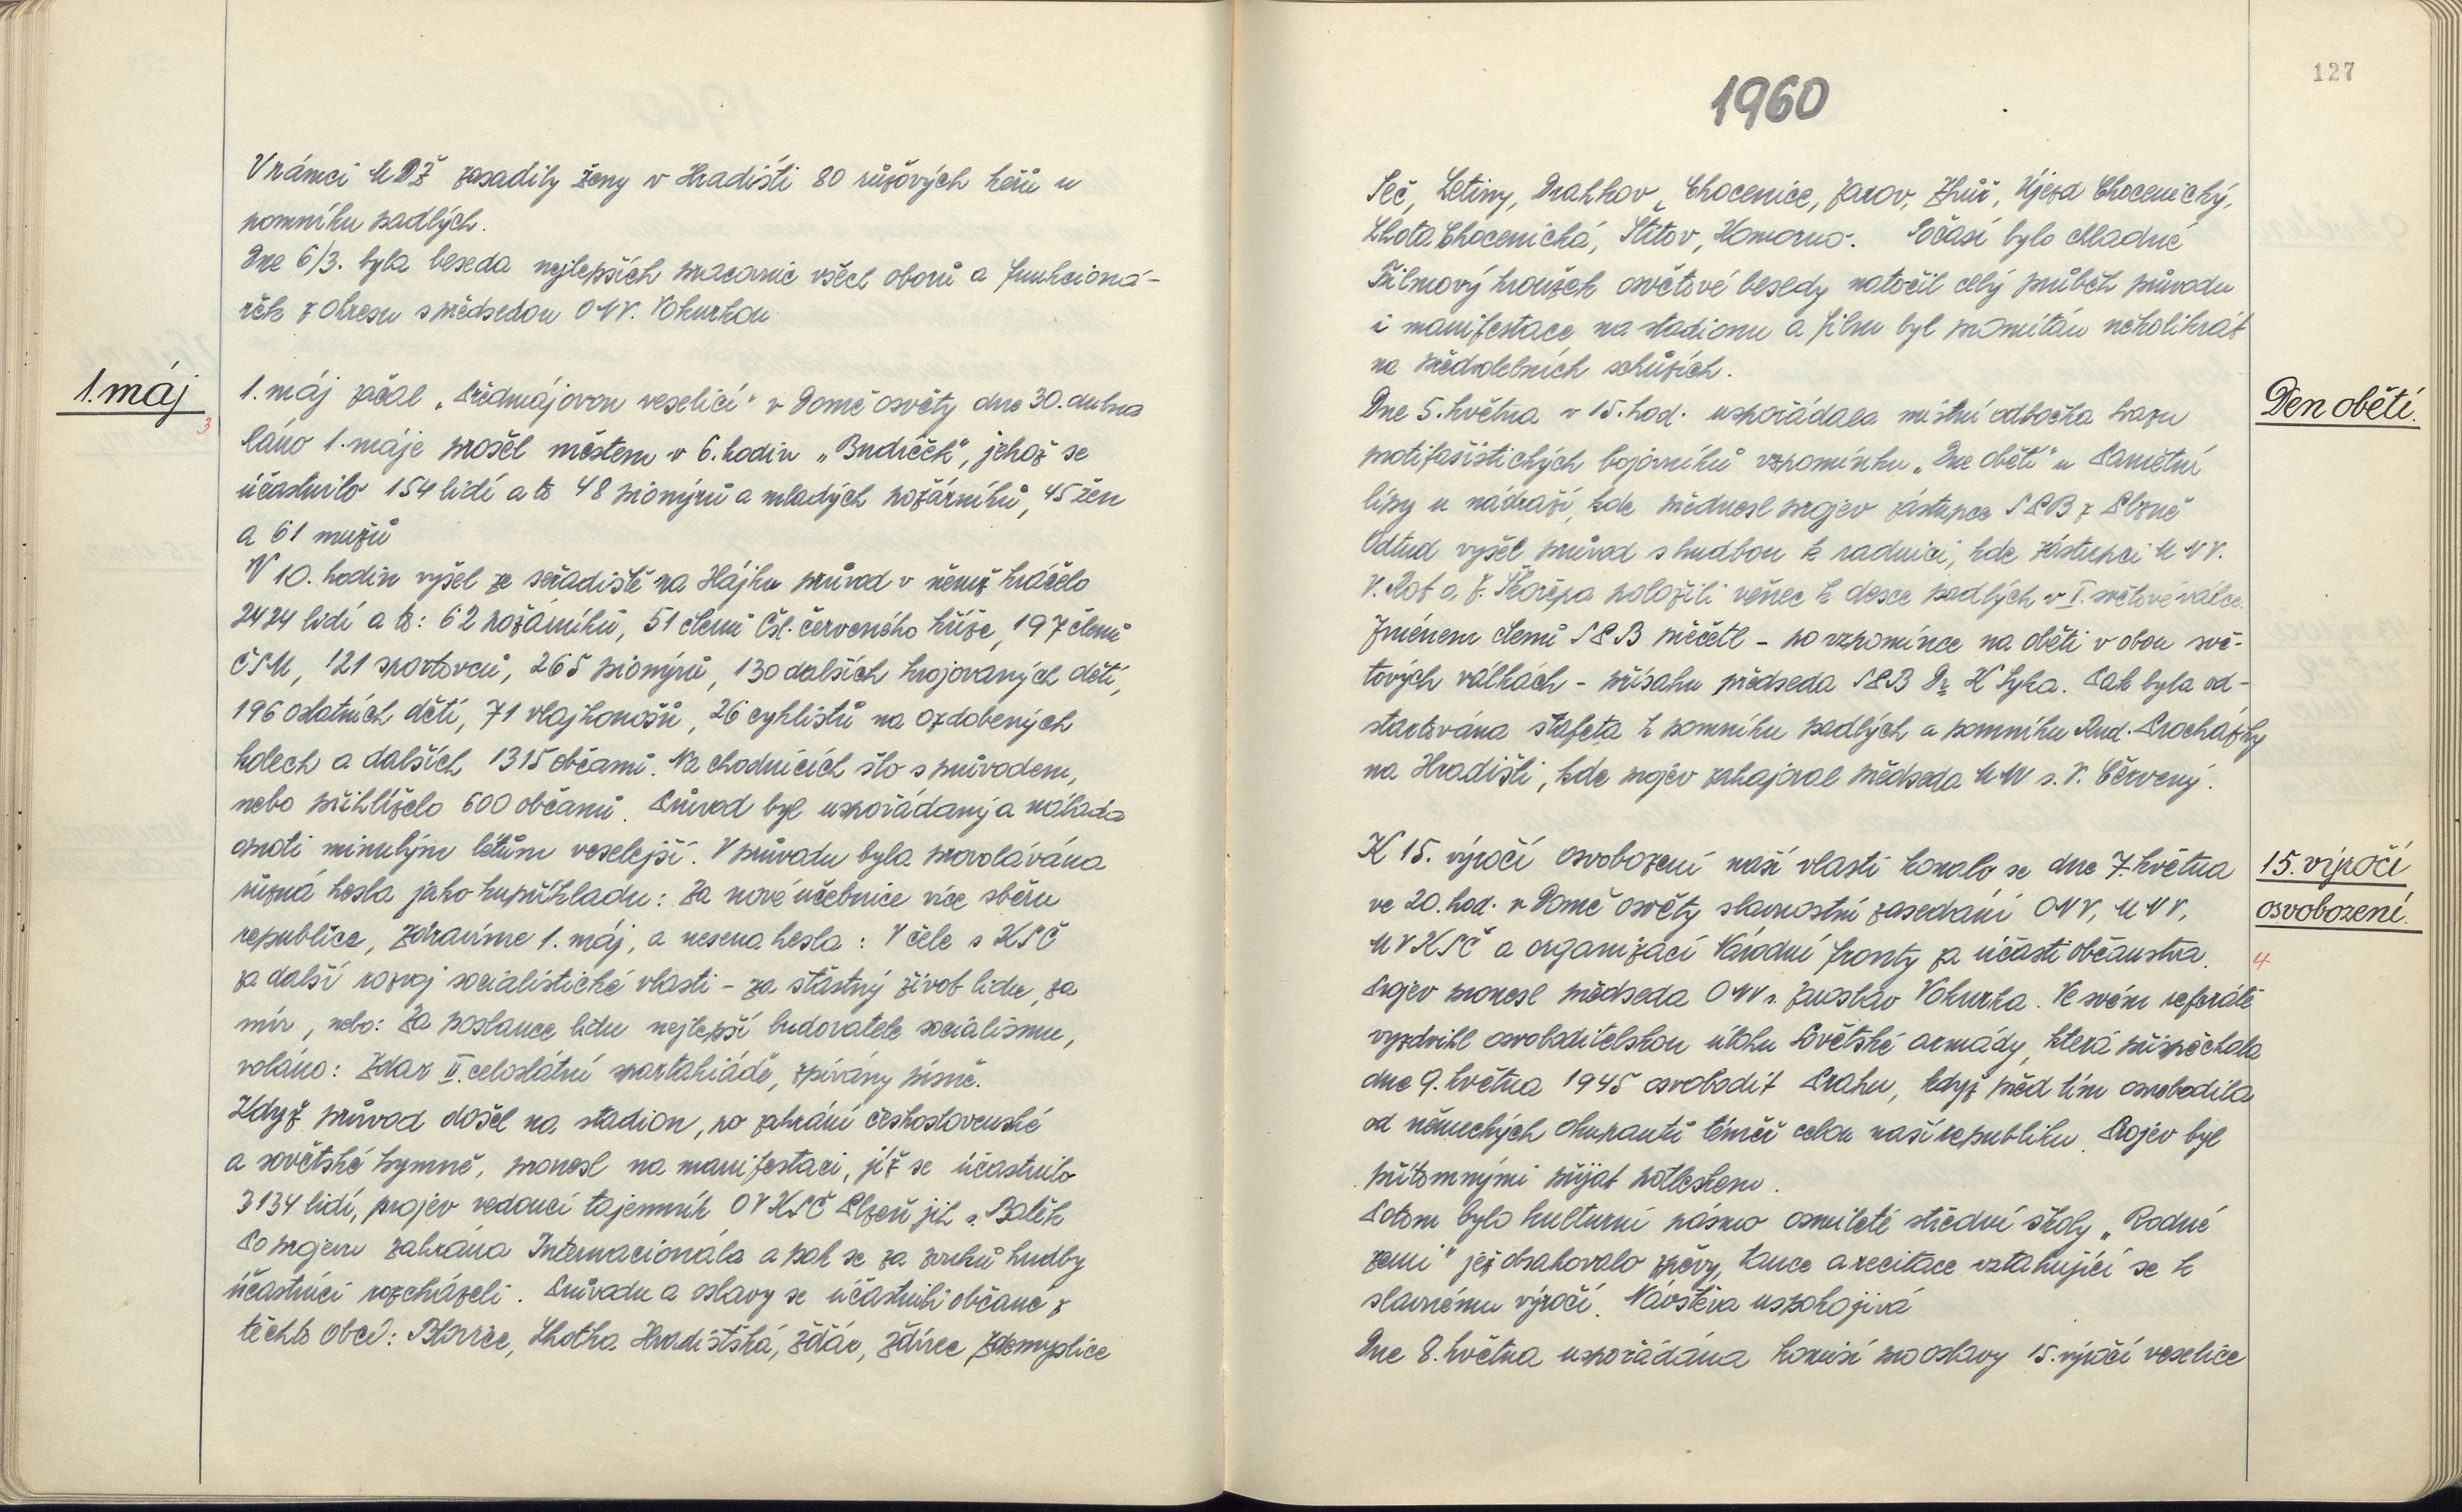 V rámci MDŽ zasadily ženy v Hradišti 80 růžových keřů u
pomníku padlých.
Dne 6/3. byla beseda nejlepších pracovnic všech oborů a funkcioná-
řek z okresu s předsedou ONV. Vokurkou
1. máj
3
1. máj začal „Předmájovou veselicí" v Domě osvěty dne 30. dubna
Ráno 1. máje prošel městem v 6. hodin „Budíček", jehož se
účastnilo 154 lidí a to 48 pionýrů a mladých požárníků, 45 žen
a 61 mužů
V 10. hodin vyšel ze seřadiště na Hájku průvod v němž kráčelo
2424 lidí a to: 62 požárníků, 51 členů Čsl. červeného kříže, 197 členů
ČSM, 121 sportovců, 265 pionýrů, 130 dalších krojovaných dětí,
196 ostatních dětí, 71 vlajkonošů, 26 cyklistů na ozdobených
kolech a dalších 1315 občanů. Na chodnících šlo s průvodem,
nebo přihlíželo 600 občanů. Průvod byl uspořádaný a nálada
oproti minulým létům veselejší. V průvodu byla provolávána
různá hesla jako kupříkladu: Za nové učebnice více sběru
republice, zdravíme 1. máj, a nesena hesla: V čele s KSČ
za další rozvoj socialistické vlasti - za šťastný život lidu, za
mír, nebo: Za poslance lidu nejlepší budovatele socialismu,
voláno: Zdar II. celostátní spartakiádě, zpívány písně.
Když průvod došel na stadion, po zahrání československé
a sovětské hymně, pronesl na manifestaci, jíž se účastnilo
3134 lidí, projev vedoucí tajemník OV KSČ Plzeň jih s. Bolek
Po projevu zahrána Internacionála a pak se za zvuků hudby
účastníci rozcházeli. Průvodu a oslavy se účastnili občané z
těchto obcí: Blovice, Lhotka Hradištská, Žďár, Ždírec Zdemyslice
1960
127
Seč, Letiny, Drahkov, Chocenice, Jarov, Zhůř, Újezd Chocenický,
Lhota Chocenická, Štítov, Komorno. Počasí bylo chladné
Filmový kroužek osvětové besedy natočil celý průběh průvodu
i manifestace na stadionu a film byl promítán několikrát
na předvolebních schůzích.
Den obětí.
Dne 5. května v 15. hod. uspořádala místní odbočka svazu
protifašistických bojovníků vzpomínku „Dne obětí" u Památní
lípy u nádraží, kde přednesl projev zástupce SPB z Plzně
Odtud vyšel průvod s hudbou k radnici, kde zástupci MNV.
V. Rot a J. Škořepa položili věnec k desce padlých v I. světové válce.
Jménem členů SPB přečetl - po vzpomínce na oběti v obou svě-
tových válkách - přísahu předseda SPB Dr K Syka. Pak byla od-
startována štafeta k pomníku padlých a pomníku Rud. Procházky
na Hradišti, kde projev zahajoval předseda MNV s. V. Červený.
15. výročí
osvobození.
4
K 15. výročí osvobození naší vlasti konalo se dne 7. května
ve 20. hod. v Domě osvěty slavnostní zasedání ONV, MNV,
MV KSČ a organizací Národní fronty za účasti občanstva.
Projev pronesl předseda ONV s. Jaroslav Vokurka. Ve svém referátě
vyzdvihl osvoboditelskou úlohu Sovětské armády, která přispěchala
dne 9. května 1945 osvobodit Prahu, když před tím osvobodila
od německých okupantů téměř celou naší republiku. Projev byl
přítomnými přijat potleskem.
Potom bylo kulturní pásmo osmileté střední školy „Rodné
zemi" jež obsahovalo zpěvy, tance a recitace vztahující se k
slavnému výročí. Návštěva uspokojivá
Dne 8. května uspořádána komisí pro oslavy 15. výročí veselice